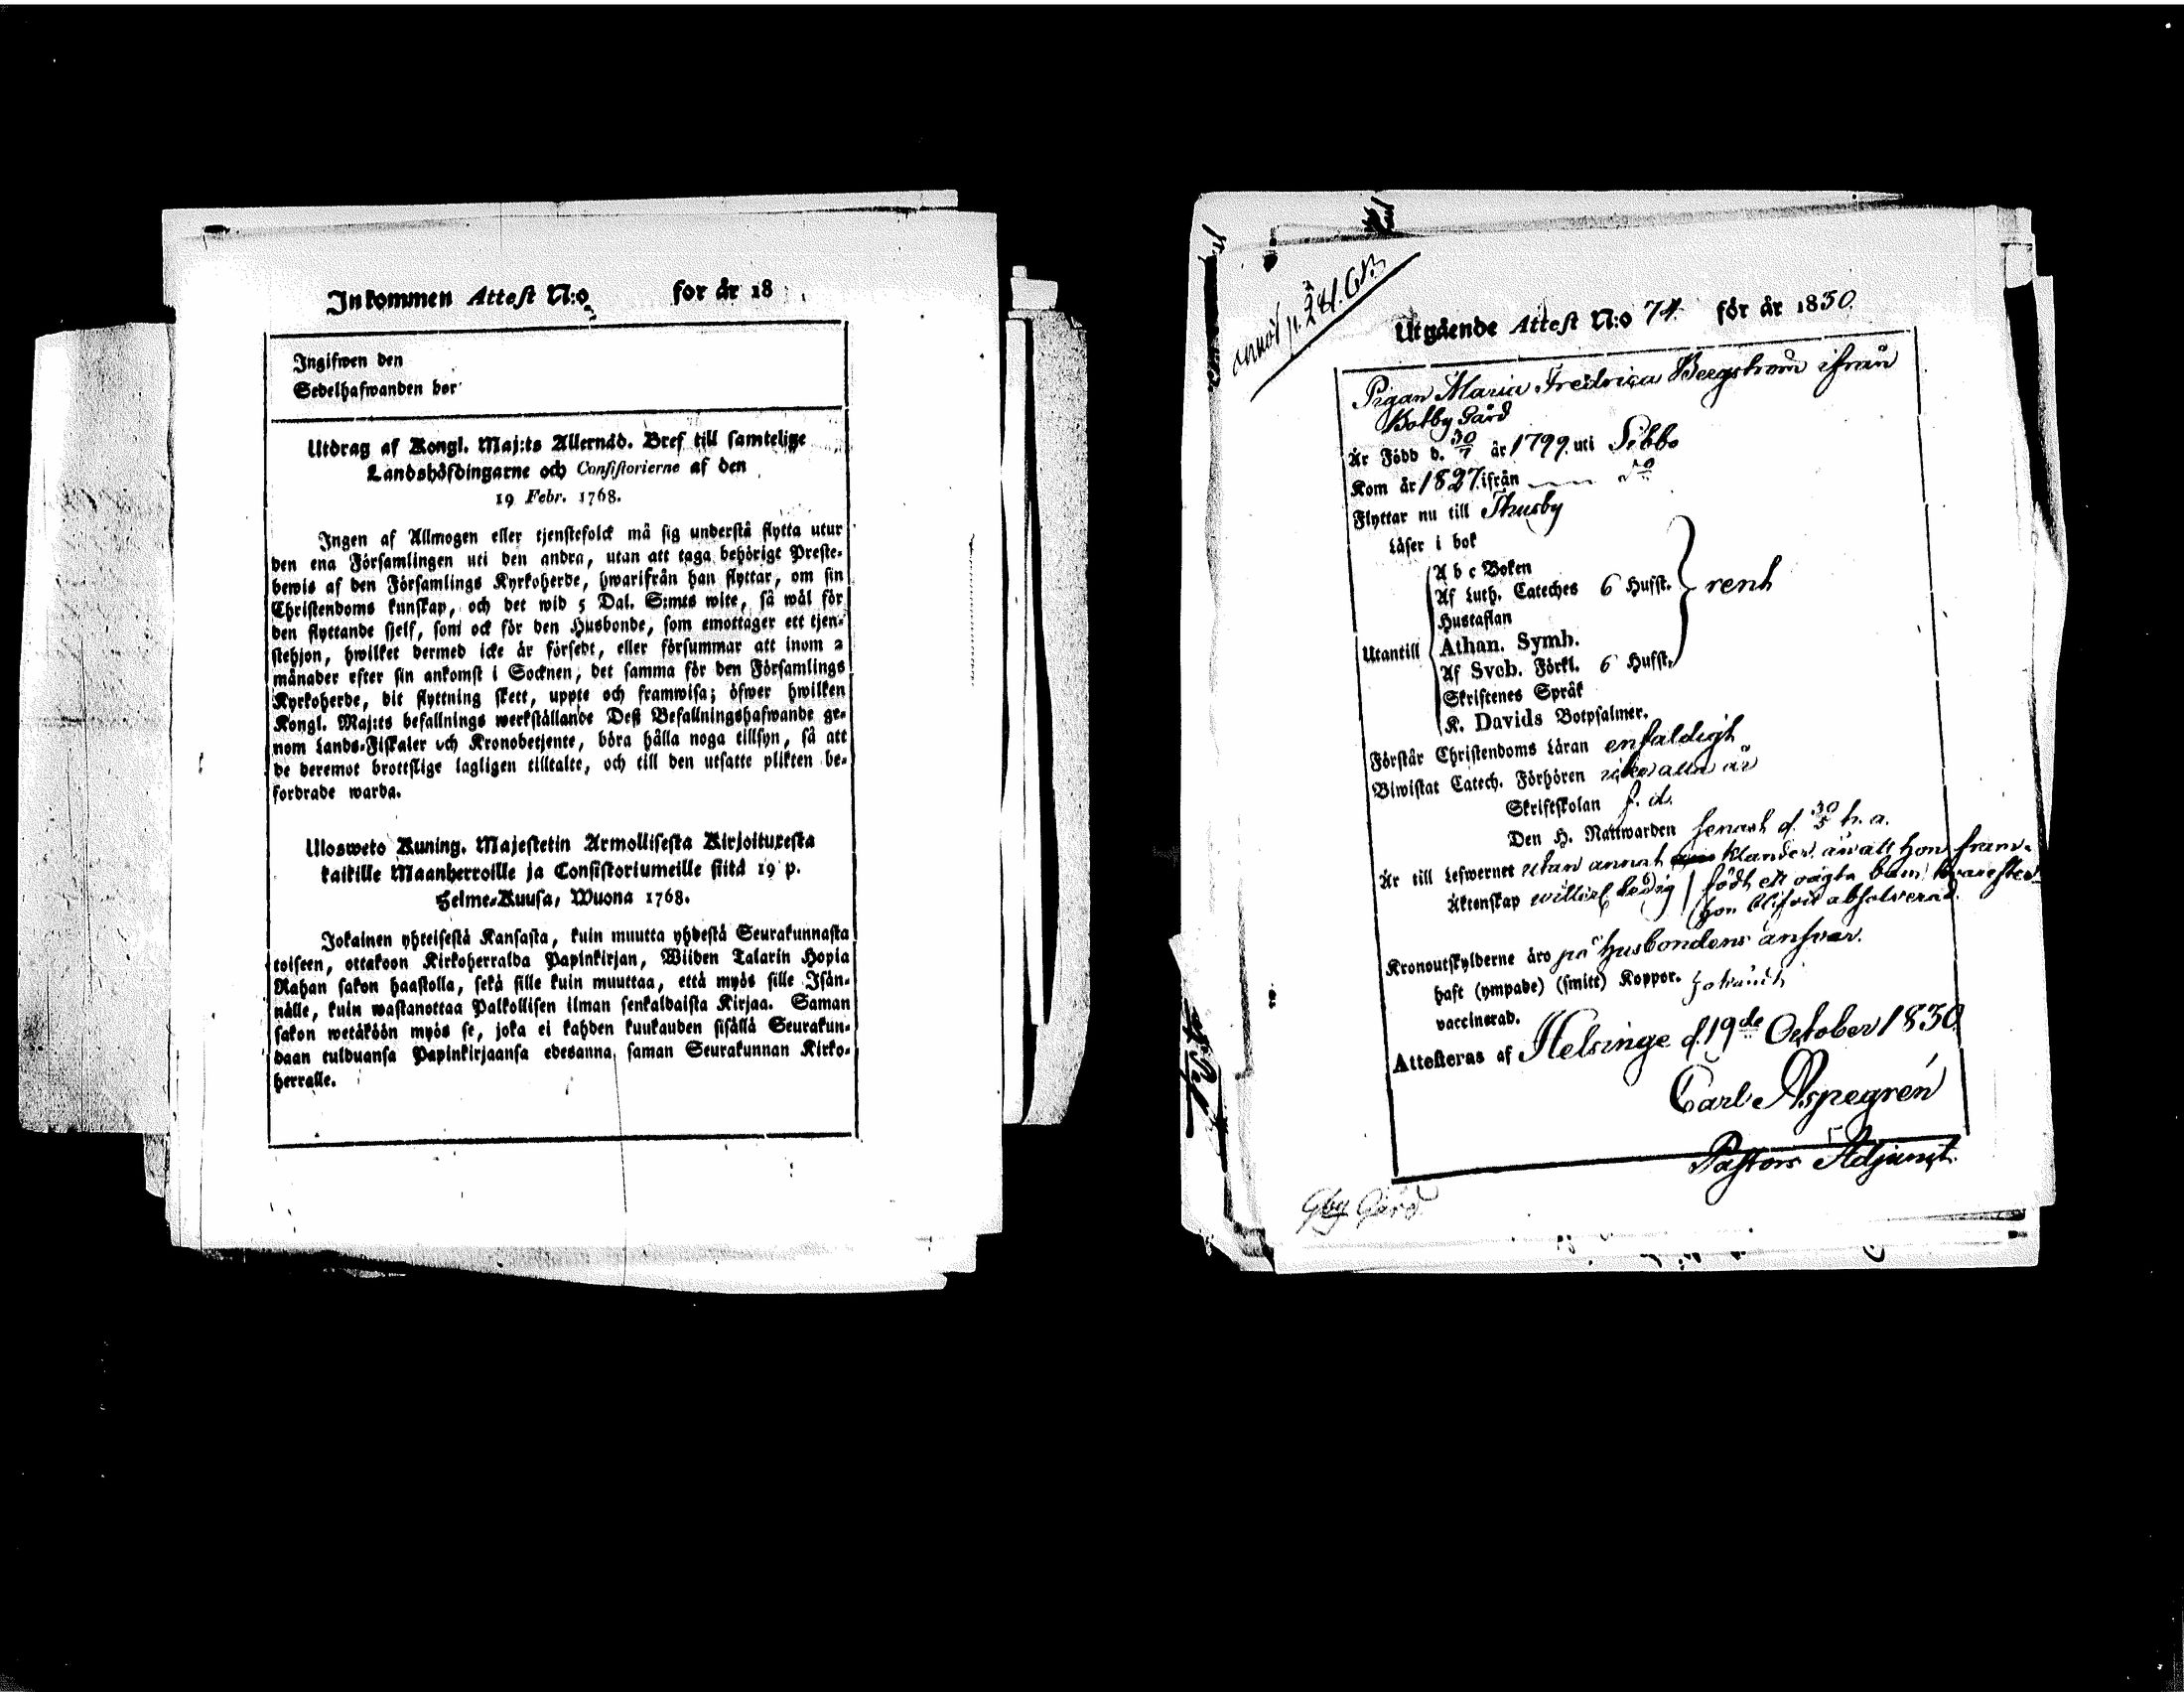 Inkommen Attest N:o för år 18
Ingifwen den
Sedelhafwanden bor
Utdrag af Kongl. Maj:ts Allernåd. Bref till samtelige
Landshöfdingarne och Consistorierne af den
19 Febr. 1768.
Ingen af Allmogen eller tjenstefolck må sig understå flytta utur
den ena Församlingen uti den andra, utan att taga behörigt Preste-
bewis af den Församlings Kyrkoherde, hwarifrån han flyttar, om sin
Christendoms kunskap, och det wid 5 Dal. S:mts wite, så wäl för
den flyttande sjelf, som ock för den Husbonde, som emottager ett tjen-
stehjon, hwilket dermed icke är försedt, eller försummar att inom 2
månader efter sin ankomst i Socknen, det samma för den Församlings
Kyrkoherde, dit flyttning skett, uppte och framwisa; öfwer hwilken
Kongl. Maj:ts befallnings werkställande Deß Befallningshafwande ge-
nom Lands-Fiskaler och Kronobetjente, böra hålla noga tillsyn, så att
de deremot brottslige lagligen tilltalte, och till den utsatte plikten be-
fordrade warda.
Ulosweto Kuning. Majestetin Armollisesta Kirjoituxesta
kaikille Maanherroille ja Consistoriumeille siitä 19 p.
Helme-Kuusa, Wuona 1768.
Jokainen yhteisestä Kansasta, kuin muutta yhdestä Seurakunnasta
toiseen, ottakoon Kirkoherralda Papinkirjan, Wiiden Talarin Hopia
Rahan sakon haastolla, sekä sille kuin muuttaa, että myös sille Isän-
nälle, kuin wastanottaa Palkollisen ilman senkaldaista Kirjaa. Saman
sakon wetäköön myös se, joka ei kahden kuukauden sisällä Seurakun-
daan tulduansa Papinkirjaansa edesanna, saman Seurakunnan Kirko-
herralle.
Utgående Attest N:o 74. för år 1830.
Pigan Maria Fredrica Bergström ifrån
Botby Gård
Är Född d. 30/7 år 1799. uti Sibbo
Kom år 1827. ifrån do
Flyttar nu till Thusby
Läser i bok
Utantill
A b c Boken
Af Luth. Cateches 6 Hufst.
Hustaflan
Athan. Symb.
Af Sveb. Förkl. 6 Hufst.
Skriftenes Språk
K. Davids Botpsalmer.
rent
Förstår Christendoms Läran enfaldigt
Biwistat Catech. Förhören alla år
Skriftskolan f. d.
Den H. Nattwarden senast d. 30/5 h. a.
Är till Lefwernet utan annat klander, än att hon fram-
födt ett oägta barn, hvarefter
hon blifvit absolverad.
Äktenskap ledig
Kronoutskylderne äro på husbondens ansvar.
haft (ympade) (smitt) Koppor.
vaccinerad.
Attesteras af Helsinge d. 19de October 1830
Carl Aspegrén
Pastors Adjunct.
Gby Gård